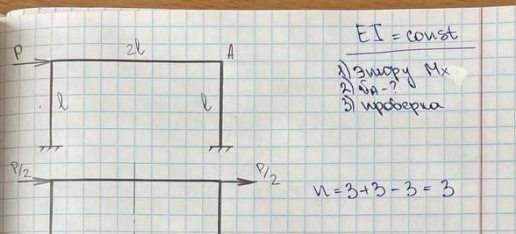 EI = const
P
2l
A
1) Эпюру Mx
2) δA - ?
3) проверка
l
l
P/2
P/2
n = 3 + 3 - 3 = 3